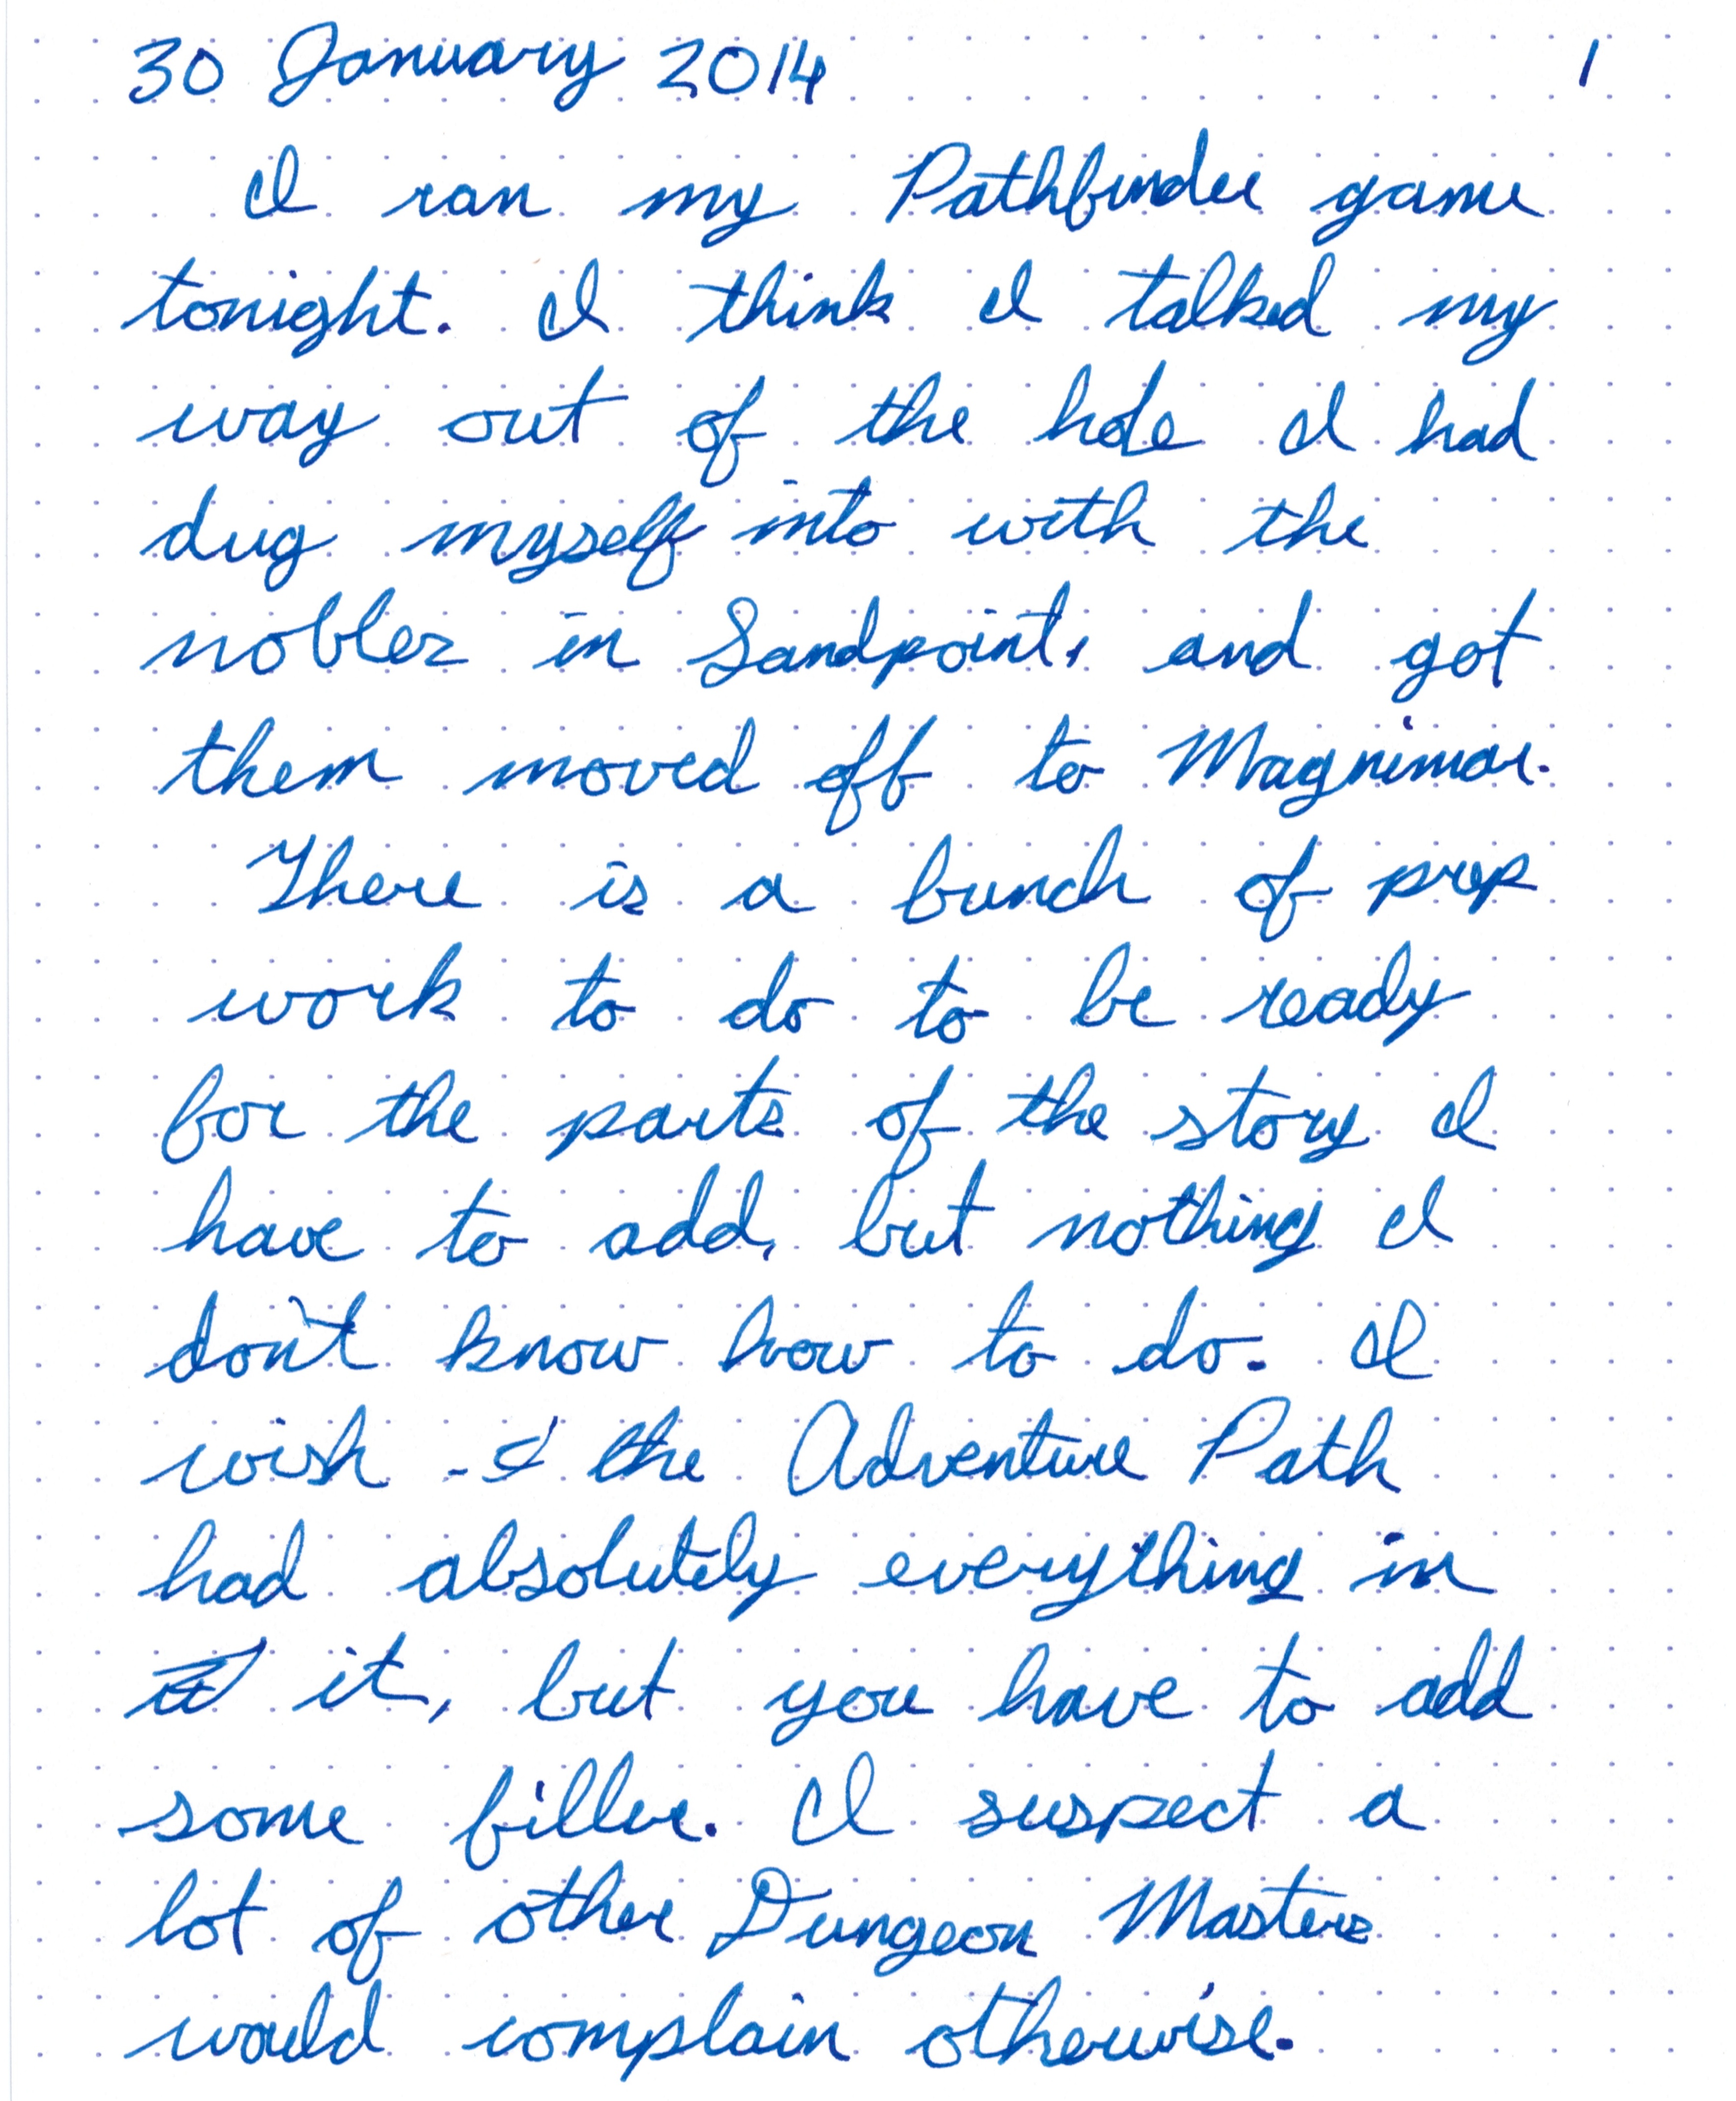 30 January 2014 1
I ran my Pathfinder game
tonight. I think I talked my
way out of the hole I had
dug myself into with the
nobles in Sandpoint, and got
them moved off to Magnimar.
There is a bunch of prep
work to do to be ready
for the parts of the story I
have to add, but nothing I
don't know how to do. I
wish the Adventure Path
had absolutely everything in
it, but you have to add
some filler. I suspect a
lot of other Dungeon Masters
would complain otherwise.